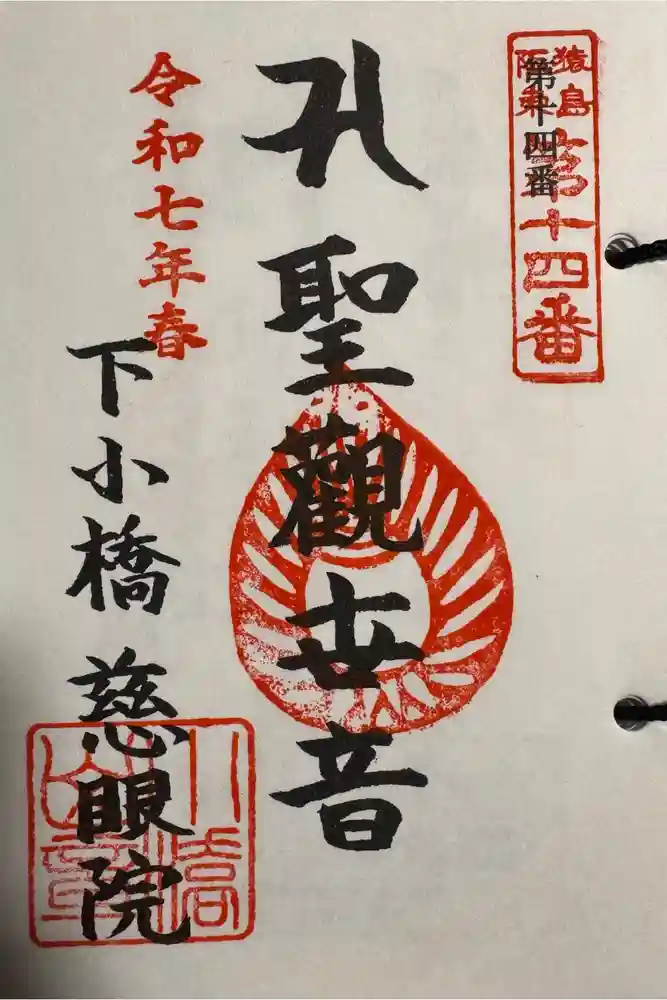 猿島
阪東
第十四番
第十四番
聖觀世音
令和七年春
下小橋 慈眼院